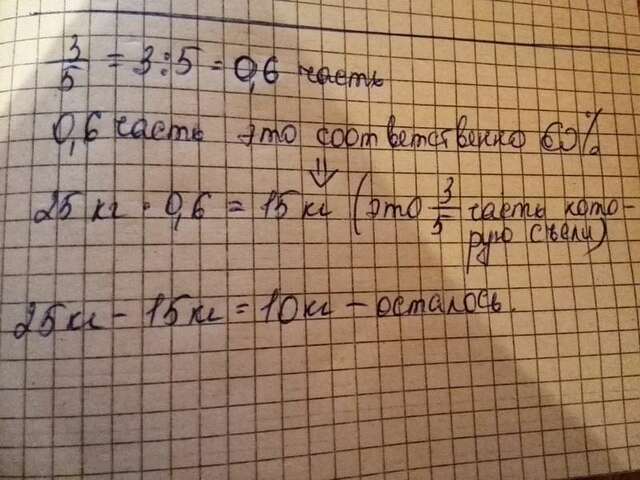 3/5 = 3:5 = 0,6 часть
0,6 часть это соответственно 60%
⇓
25 кг · 0,6 = 15 кг (это 3/5 часть кото-
рую съели)
25 кг - 15 кг = 10 кг - осталось.